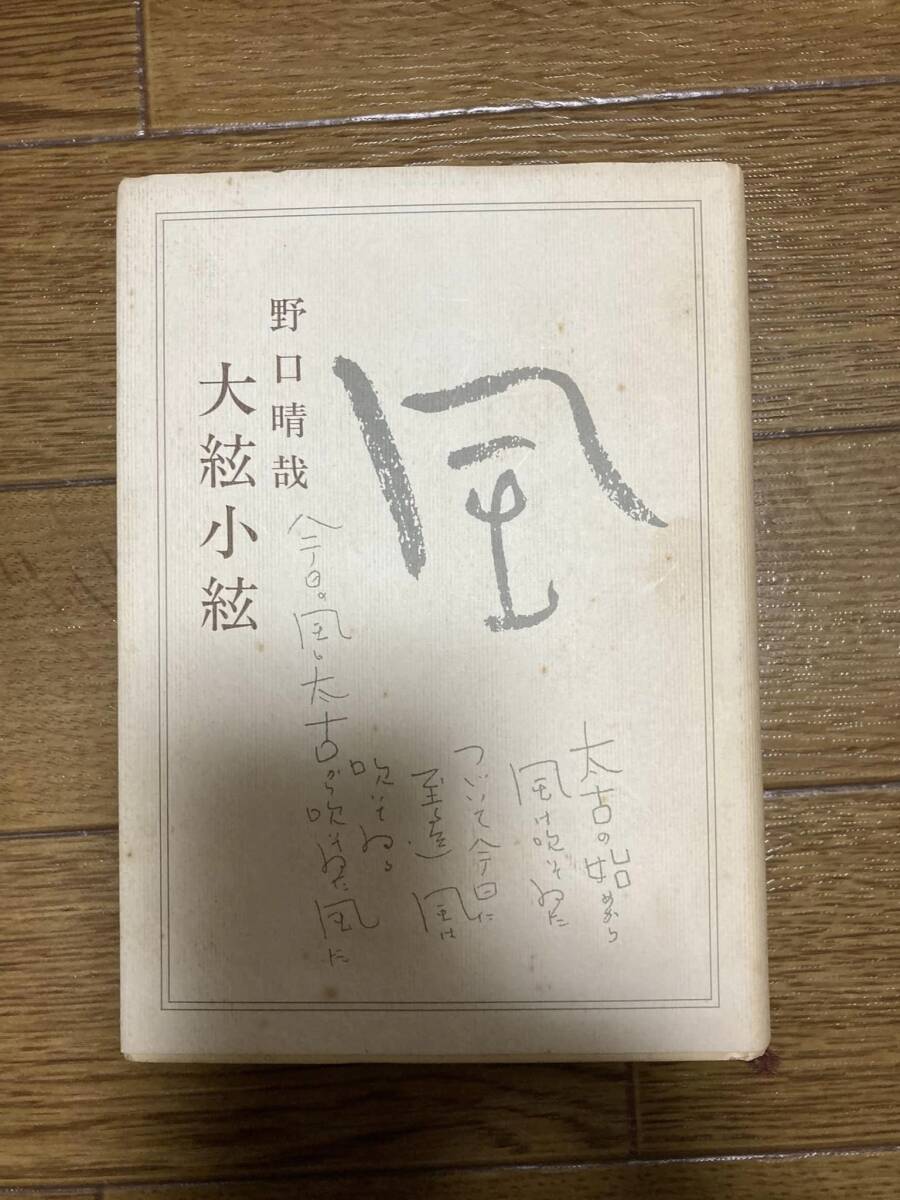 風
野口晴哉
大絃小絃
太古の始めから
風は吹いてゐた
つゞいて今日に
至る迄 風は
吹いてゐる
今日の風も太古から吹いてゐた風